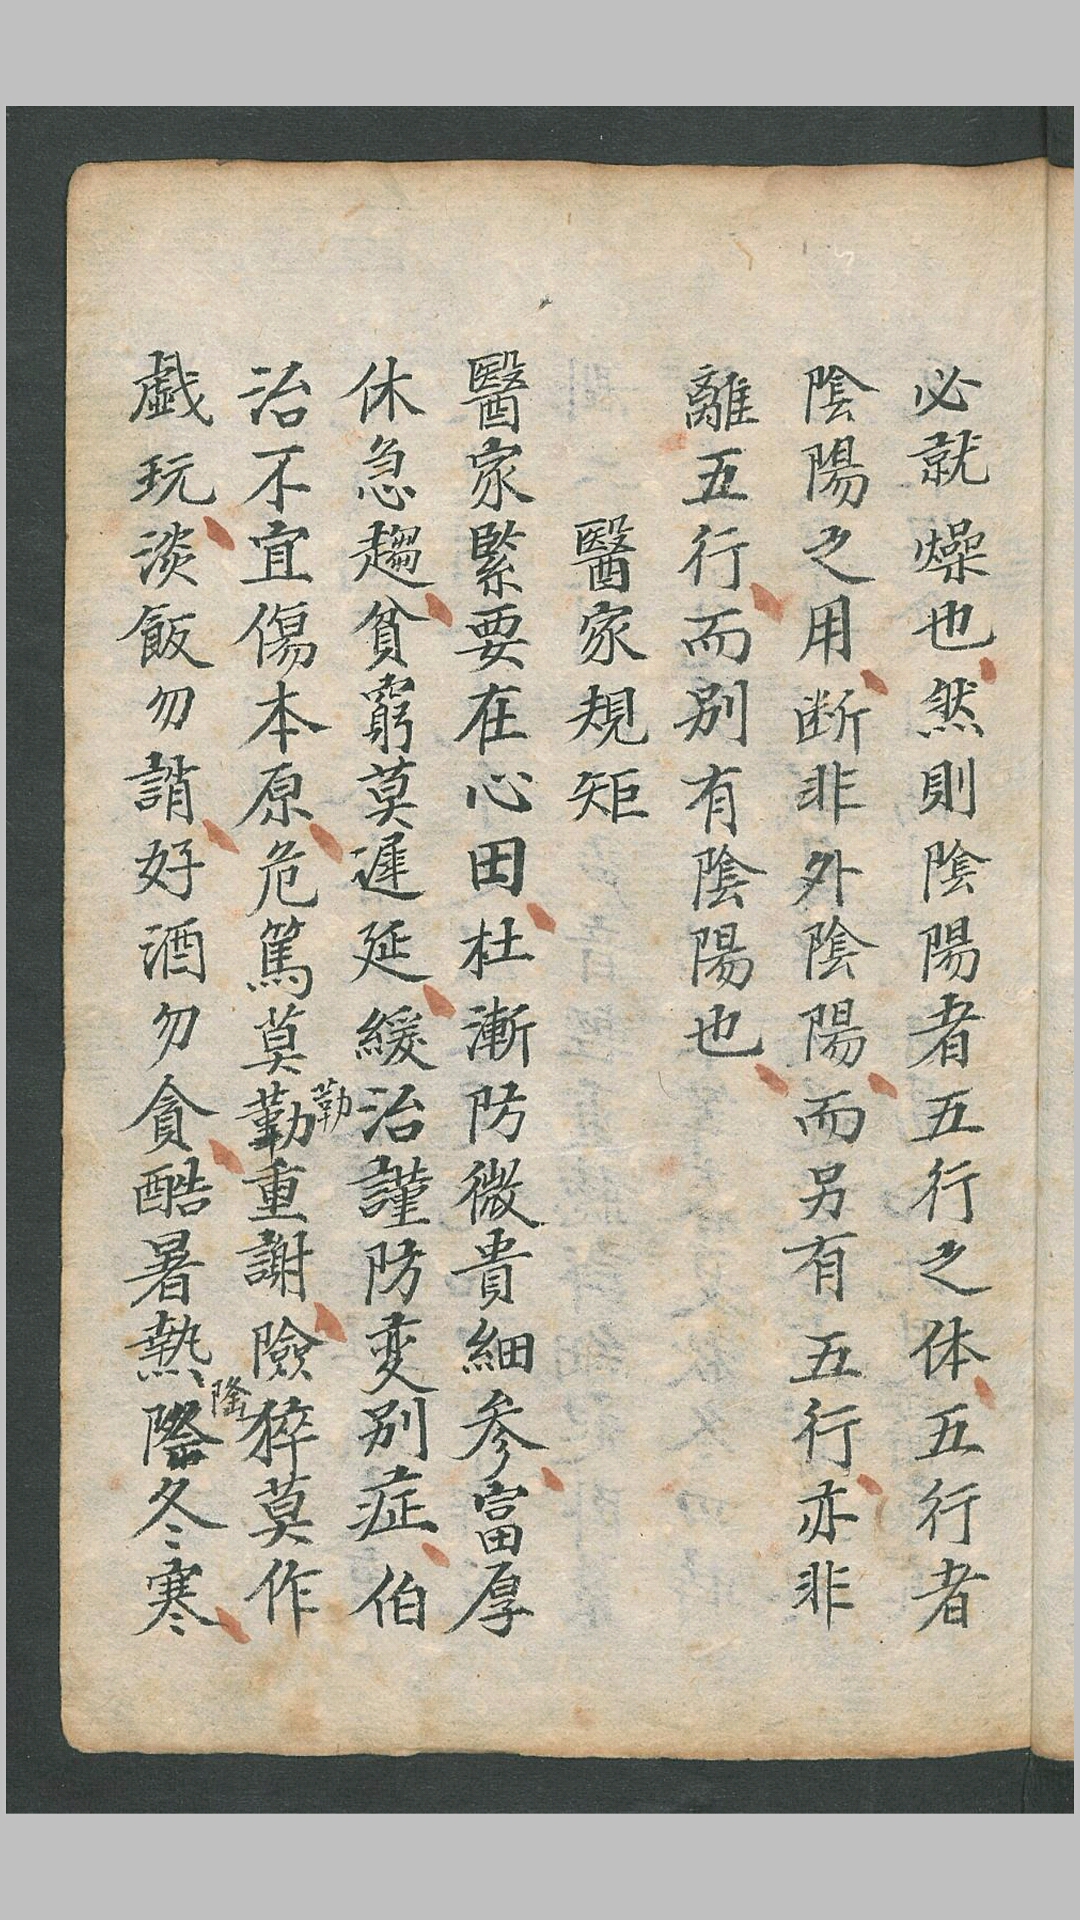 必就燥也然則陰陽者五行之体五行者
陰陽之用断非外陰陽而另有五行亦非
離五行而别有陰陽也
醫家規矩
醫家緊要在心田杜漸防微貴細参富厚
休急趨貧窮莫遲延緩治謹防变别症伯
治不宜傷本原危篤莫勒重謝險猝莫作
勒
戯玩淡飯勿誚好酒勿貪酷暑熱隆冬寒
隆